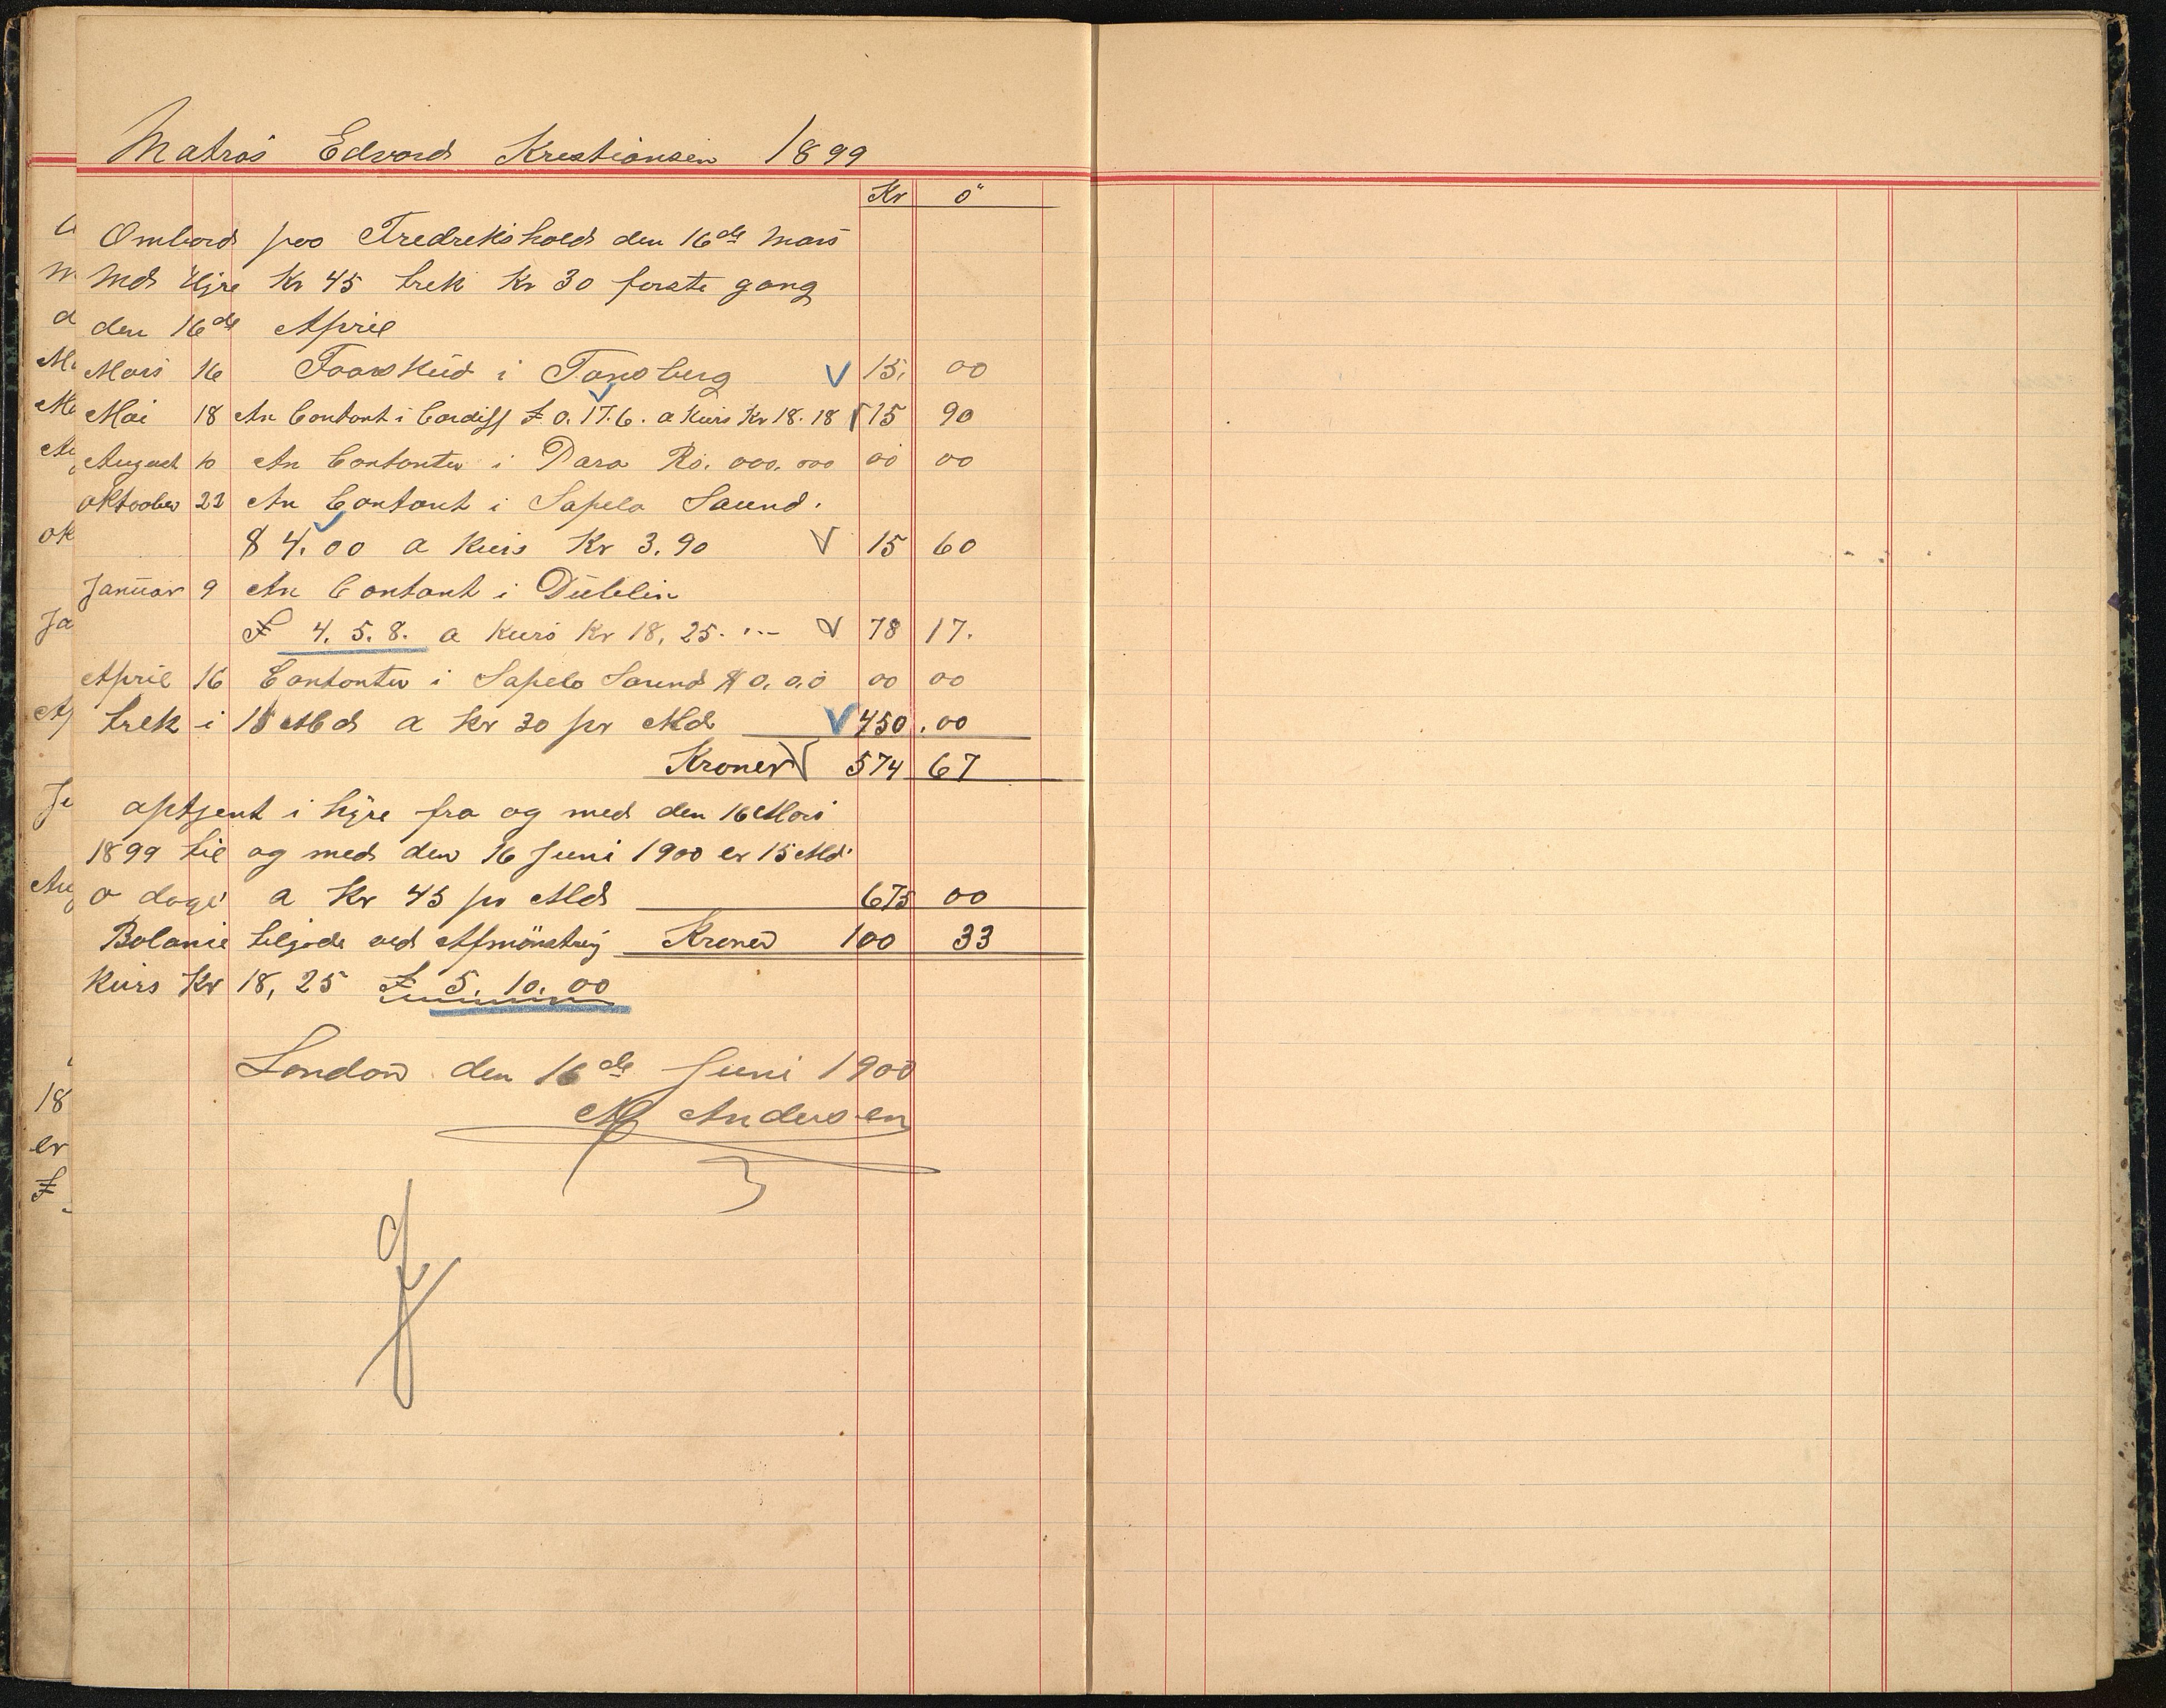 Matros Edvard Kristiansen 1899
Kr ö
Ombord paa Fredrikshald den 16de Mars
Med Hyre Kr 45 trek Kr 30 første gang
den 16de April
Mars 16 Forskud i Tønsberg 15. 00
Mai 18 An Contant i Cardiff £ 0. 17. 6. a Kurs Kr 18. 18 15 90
August 10 An Contanter i Para Rs. 000. 000 00 00
Oktoober 22 An Contant i Sapelo Saund.
$ 4.00 a Kurs Kr 3.90 15 60
Januar 9 An Contant i Dublin
£ 4. 5. 8. a Kurs Kr 18,25. 78 17.
April 16 Contanter i Sapelo Saund $ 0.00 00 00
trek i 15 Md a Kr 30 pr Md 450.00
Kroner 574 67
optjent i hyre fra og med den 16 Mars
1899 til og med den 16 Juni 1900 er 15 Md.
0 dage a Kr 45 pr Md 675 00
Balanse tilgode ved Afmönstring Kroner 100 33
Kurs Kr 18,25 £ 5. 10. 00
London den 16de Juni 1900
Andersen
18
er
£